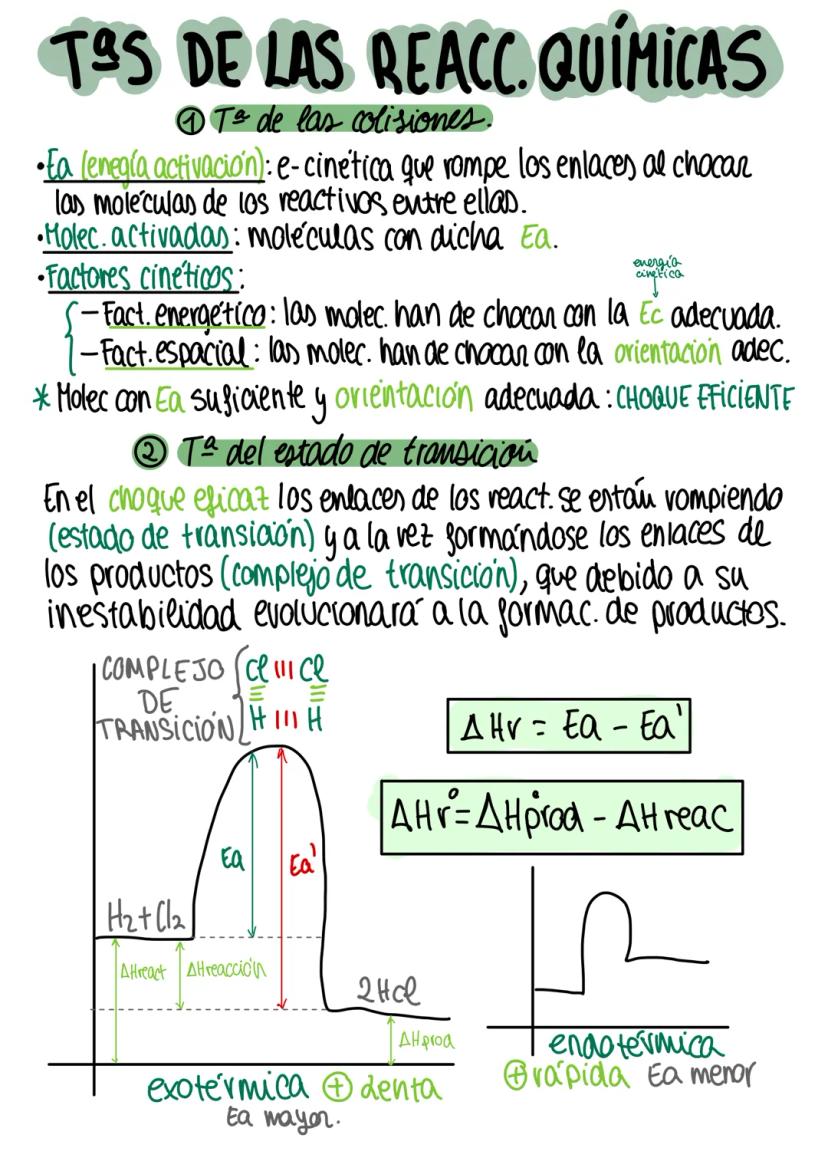 TªS DE LAS REACC. QUÍMICAS
① Tª de las colisiones.
•Ea (enegía activación): e- cinética que rompe los enlaces al chocar
las moléculas de los reactivos entre ellas.
•Molec. activadas: moléculas con dicha Ea.
•Factores cinéticos:
energía
cinética
- Fact. energético: las molec. han de chocar con la Ec adecuada.
- Fact. espacial: las molec. han de chocar con la orientación adec.
* Molec con Ea suficiente y orientación adecuada: CHOQUE EFICIENTE
② Tª del estado de transición
En el choque eficaz los enlaces de los react. se están rompiendo
(estado de transición) y a la vez formándose los enlaces de
los productos (complejo de transición), que debido a su
inestabilidad evolucionará a la formac. de productos.
COMPLEJO
DE
TRANSICIÓN
Cl III Cl
H III H
ΔHr = Ea - Ea'
ΔHr° = ΔH°prod - ΔHreac
Ea
Ea'
H2 + Cl2
ΔHreact
ΔHreacción
2HCl
ΔHprod
exotérmica ⊕ denta
Ea mayor.
endotérmica
⊕ rápida Ea menor